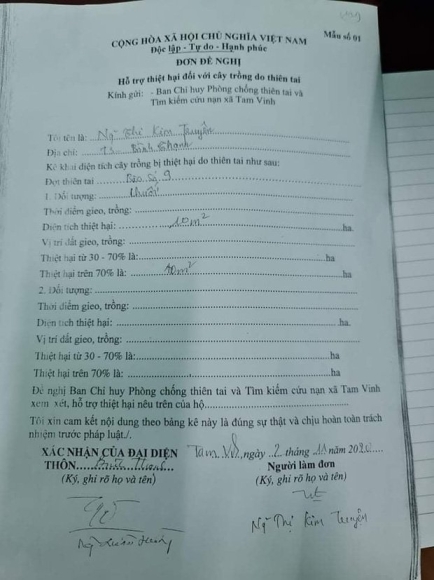 CỘNG HÒA XÃ HỘI CHỦ NGHĨA VIỆT NAM
Mẫu số 01
Độc lập - Tự do - Hạnh phúc
ĐƠN ĐỀ NGHỊ
Hỗ trợ thiệt hại đối với cây trồng do thiên tai
Kính gửi: - Ban Chỉ huy Phòng chống thiên tai và
Tìm kiếm cứu nạn xã Tam Vinh
Tôi tên là: Ng Thị Kim Tuyền
Địa chỉ: Bình Thạnh
Kê khai diện tích cây trồng bị thiệt hại do thiên tai như sau:
Đợt thiên tai Bão số 9
1. Đối tượng: Chuối
Thời điểm gieo, trồng:
Diện tích thiệt hại: 10m² ha.
Vị trí đất gieo, trồng:
Thiệt hại từ 30 - 70% là: ha
Thiệt hại trên 70% là: 10m² ha
2. Đối tượng:
Thời điểm gieo, trồng:
Diện tích thiệt hại: ha.
Vị trí đất gieo, trồng:
Thiệt hại từ 30 - 70% là: ha
Thiệt hại trên 70% là: ha
Đề nghị Ban Chỉ huy Phòng chống thiên tai và Tìm kiếm cứu nạn xã Tam Vinh
xem xét, hỗ trợ thiệt hại nêu trên của hộ
Tôi xin cam kết nội dung theo bảng kê này là đúng sự thật và chịu hoàn toàn trách
nhiệm trước pháp luật./.
XÁC NHẬN CỦA ĐẠI DIỆN
Tam Vinh, ngày 2 tháng 11 năm 2020
THÔN Bình Thạnh
Người làm đơn
(Ký, ghi rõ họ và tên)
(Ký, ghi rõ họ và tên)
Ng Thị Kim Tuyền